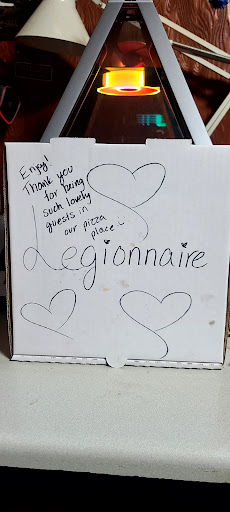 Enjoy!
Thank you
for being
such lovely
guests in
our pizza
place :)
Legionnaire